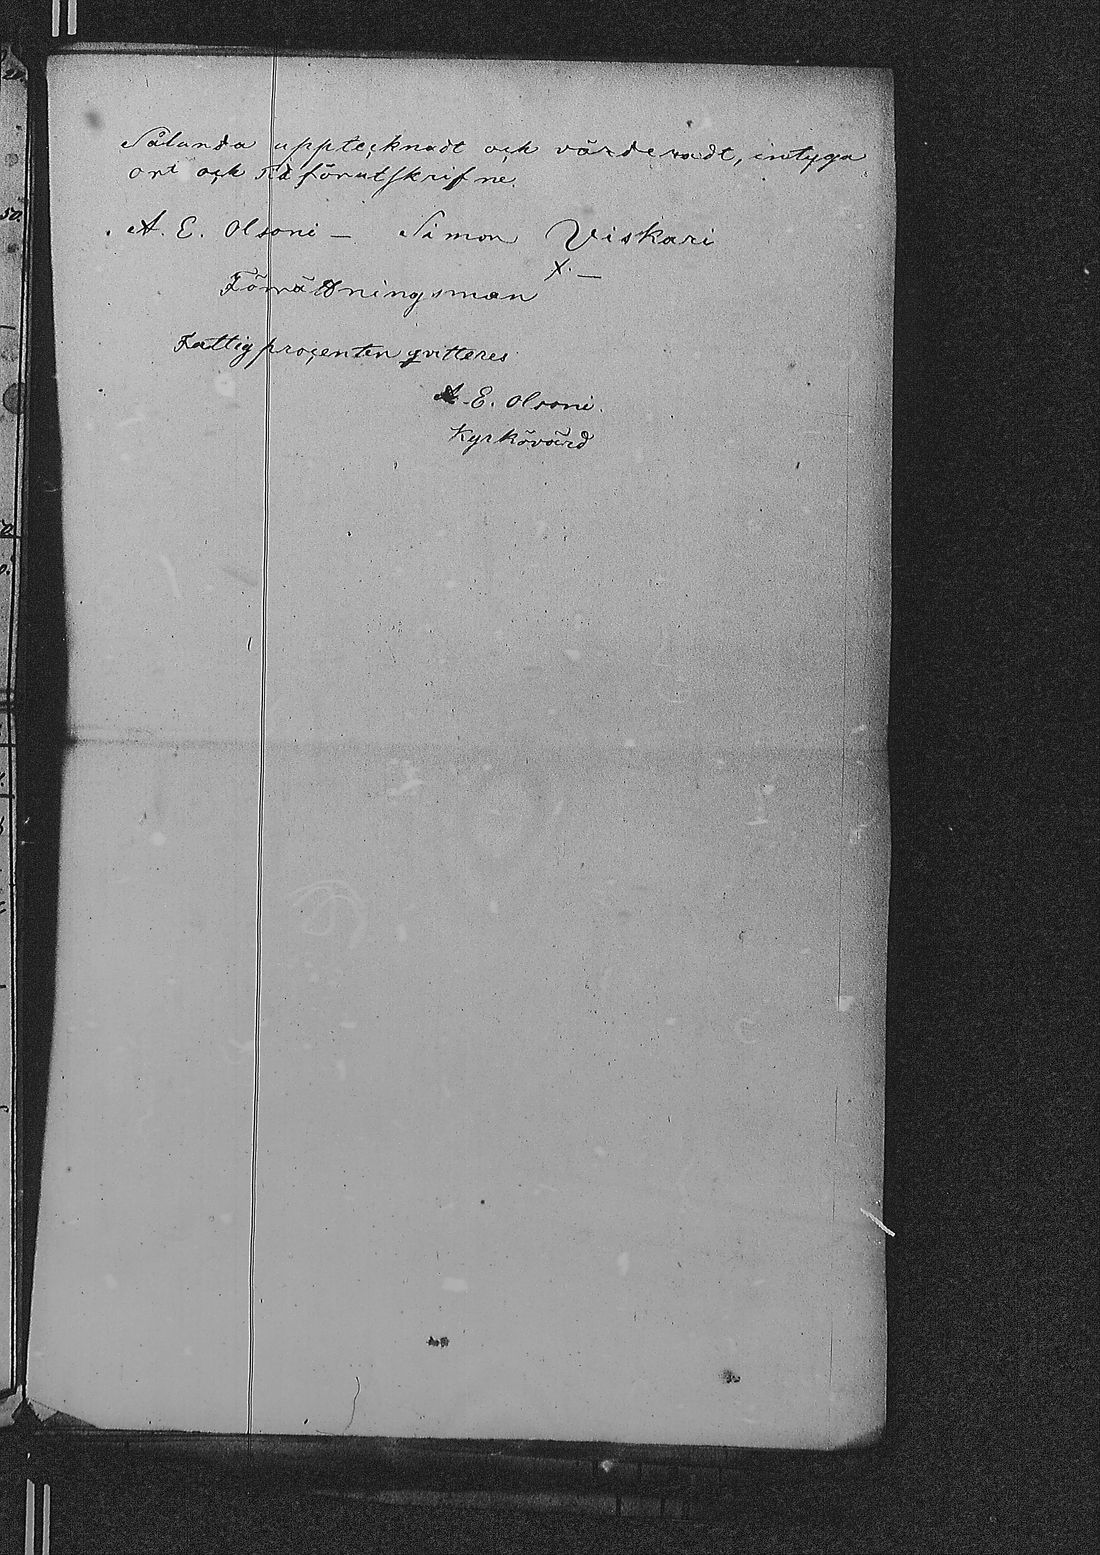 Sålunda upptecknadt och värderadt, intyga
ort och tid förutskrifne.
A. E. Olsoni — Simon Viskari
X. —
Förrättningsmän
Fattigprocenten qvitteres
A. E. Olsoni.
Kyrkövärd